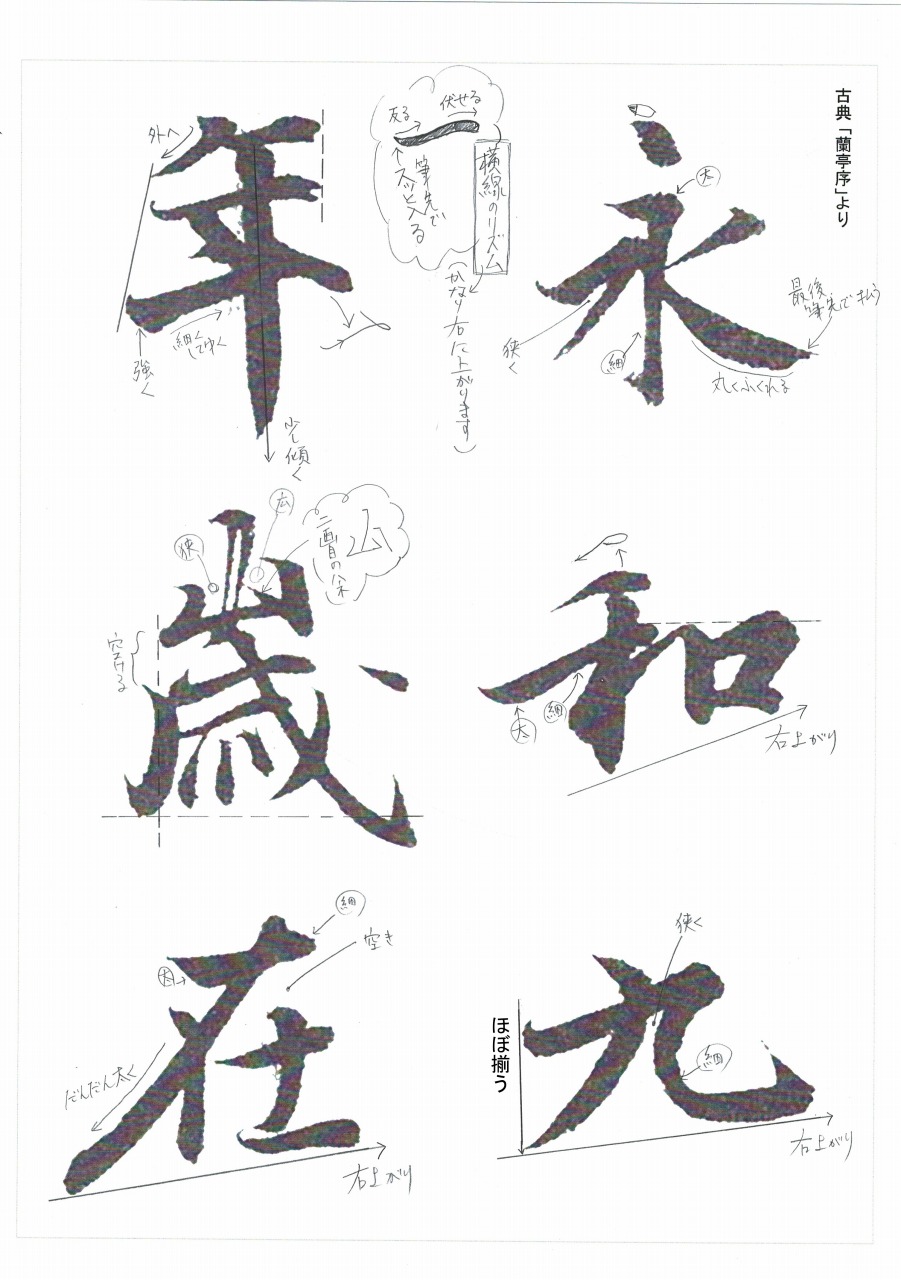 古典「蘭亭序」より
永
太
最後筆先で払う
狭く
細
丸くふくれる
横線のリズム
(かなり右に上がります)
反る
伏せる
筆先で
スッと入る
年
外へ
強く
細くしてゆく
少し傾く
和
太
細
右上がり
歳
狭
広
山
二画目の余
空ける
九
狭く
細
ほぼ揃う
右上がり
在
細
太
空き
だんだん太く
右上がり